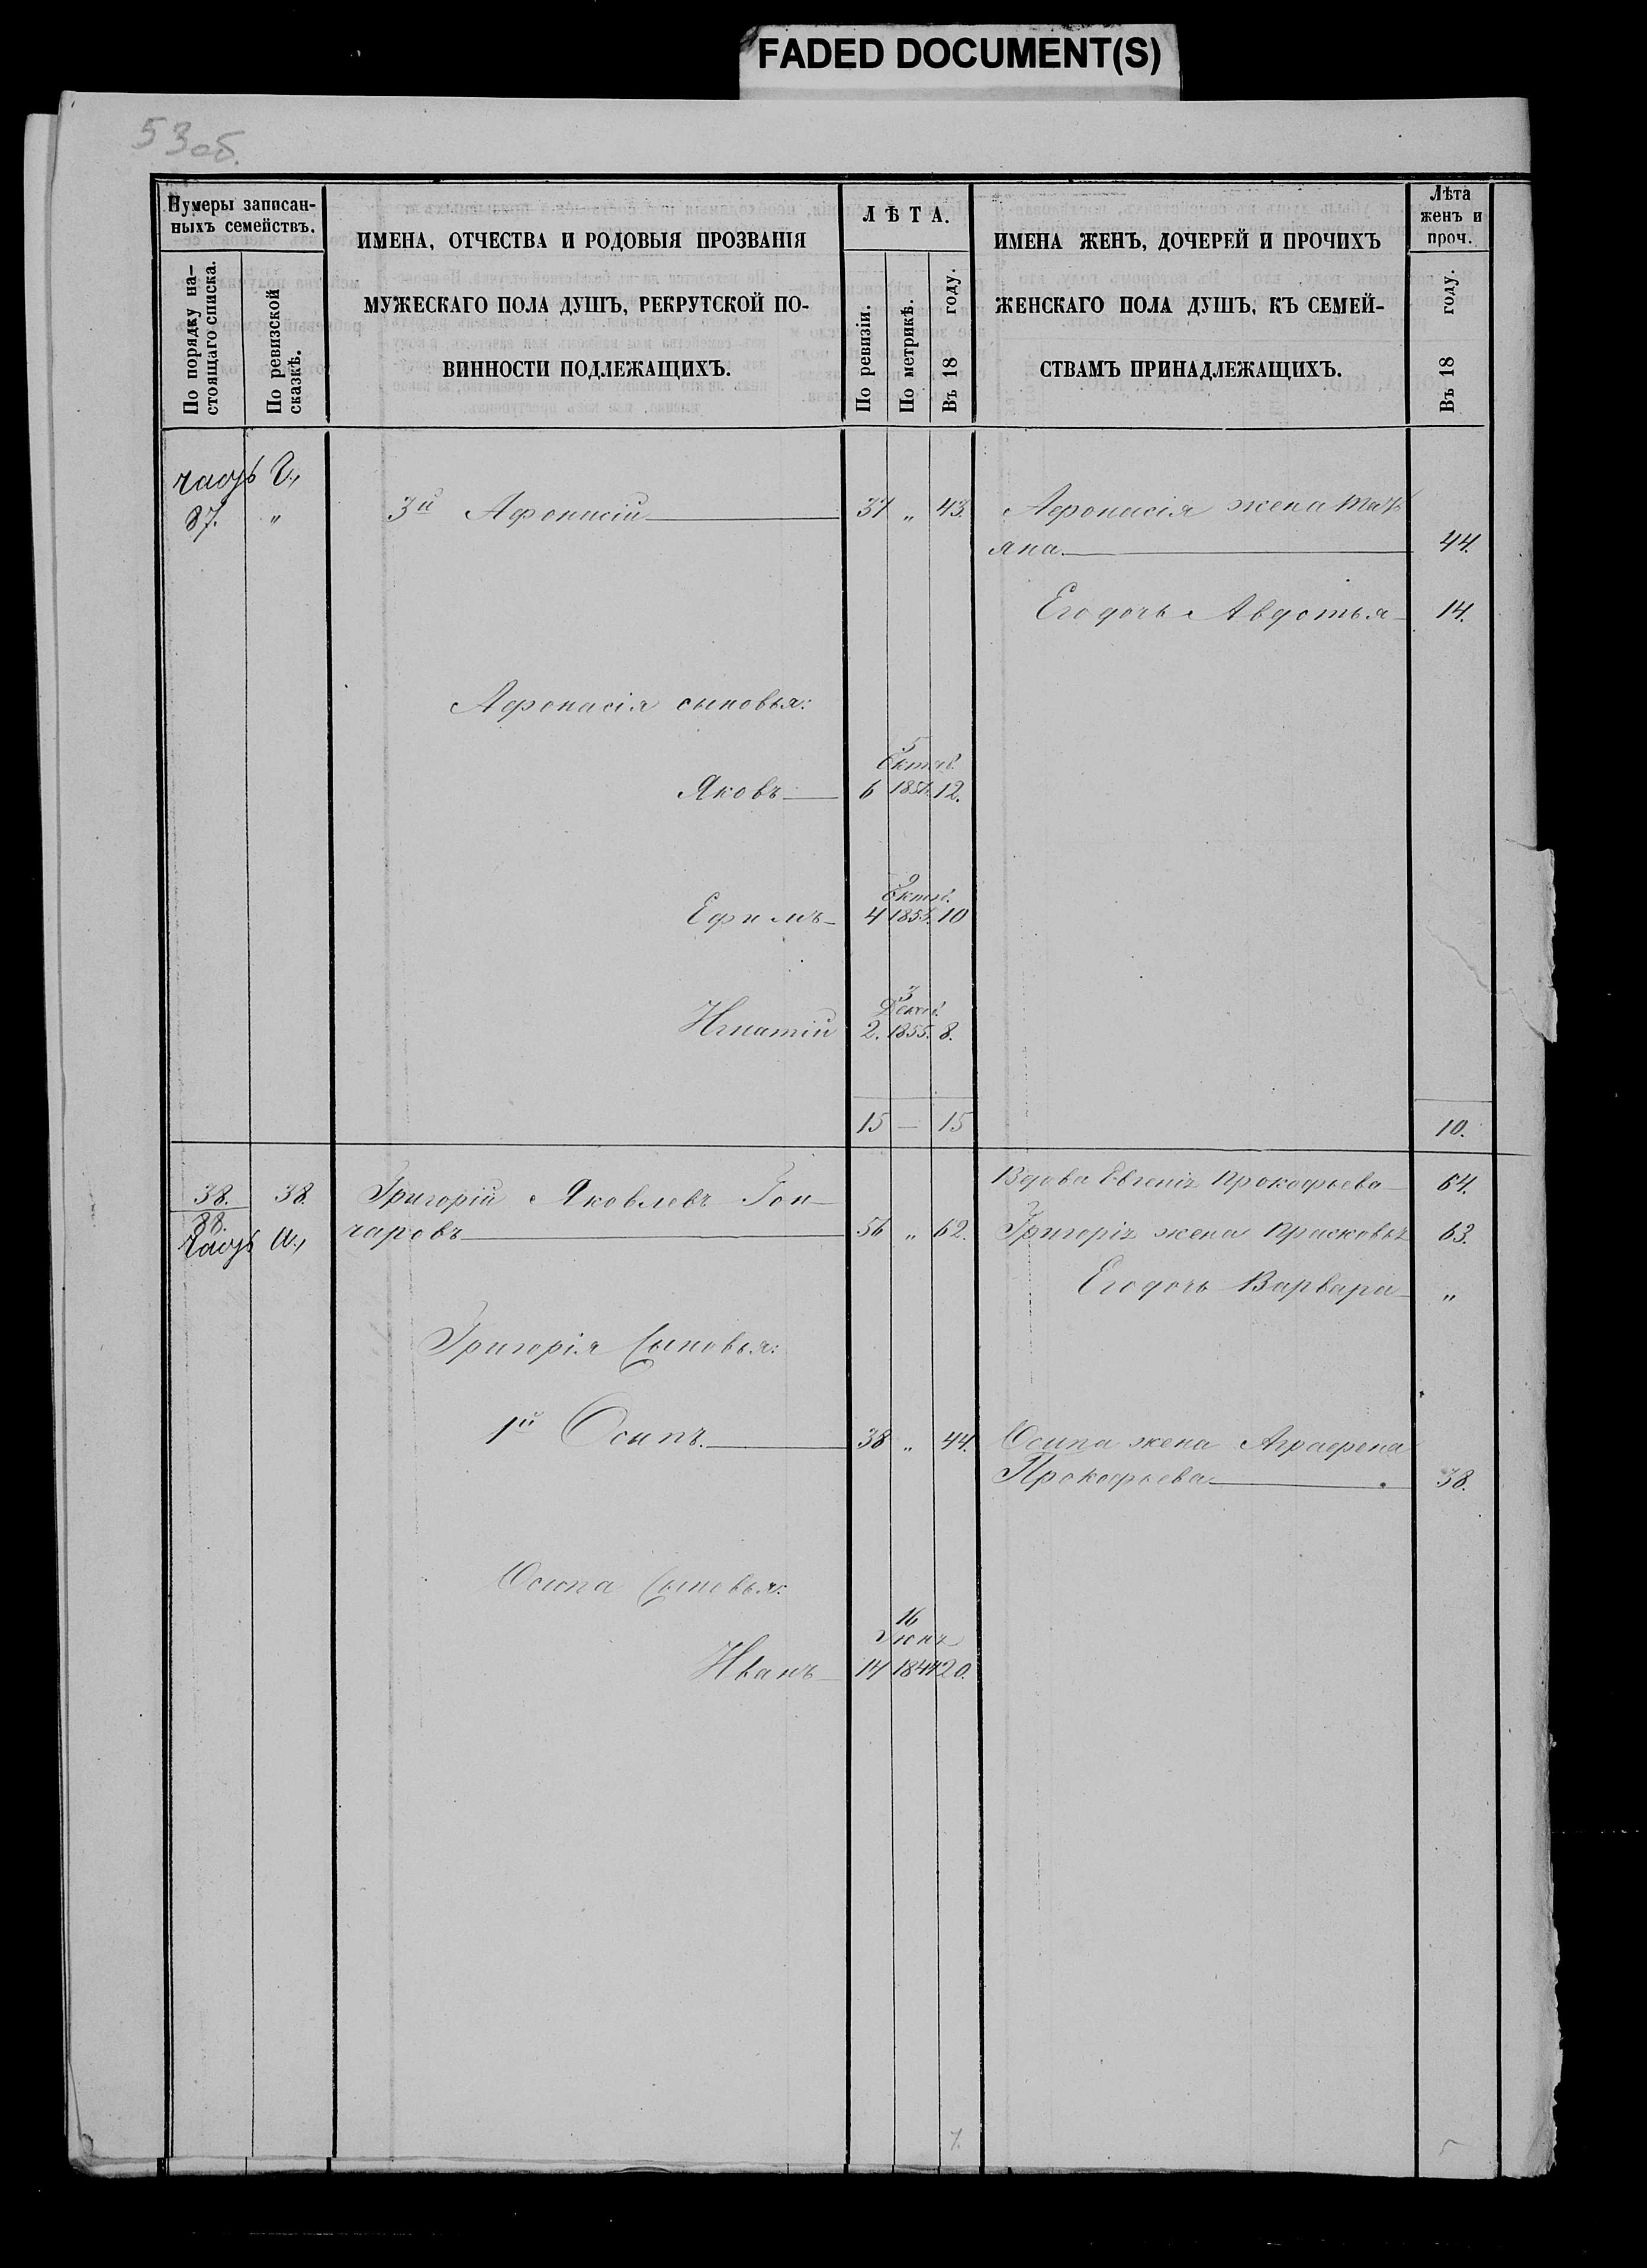 FADED DOCUMENT(S)
53 об.
Нумеры записан-
ныхъ семействъ.
По порядку на-
стоящаго списка.
По ревизской
сказкѣ.
ИМЕНА, ОТЧЕСТВА И РОДОВЫЯ ПРОЗВАНІЯ
МУЖЕСКАГО ПОЛА ДУШЪ, РЕКРУТСКОЙ ПО-
ВИННОСТИ ПОДЛЕЖАЩИХЪ.
ЛѢТА.
По ревизіи.
По метрикѣ.
Въ 18 году.
ИМЕНА ЖЕНЪ, ДОЧЕРЕЙ И ПРОЧИХЪ
ЖЕНСКАГО ПОЛА ДУШЪ, КЪ СЕМЕЙ-
СТВАМЪ ПРИНАДЛЕЖАЩИХЪ.
Лѣта
женъ и
проч.
Въ 18 году.
часть
37. „ 3й Афонасій 37 „ 43. Афонасія жена Тать
яна 44.
Его дочь Авдотья 14.
Афонасія сыновья:
5
Октяб.
Яковъ 6 1851. 12.
9
Октяб.
Ефимъ 4 1853. 10
3
Декаб.
Игнатій 2. 1855. 8.
15 — 15 10.
Вдова Евгенія Прокофьева 64.
38. 38. Григорій Яковлевъ Гон-
88.
часть
чаровъ 56 „ 62. Григорія жена Прасковья 63.
Его дочь Варвара „
Григорія Сыновья:
1й Осипъ. 38 „ 44. Осипа жена Аграфена
Прокофьева 38.
Осипа Сыновья:
16
Іюня
Иванъ 14 1844 20.
7.
5